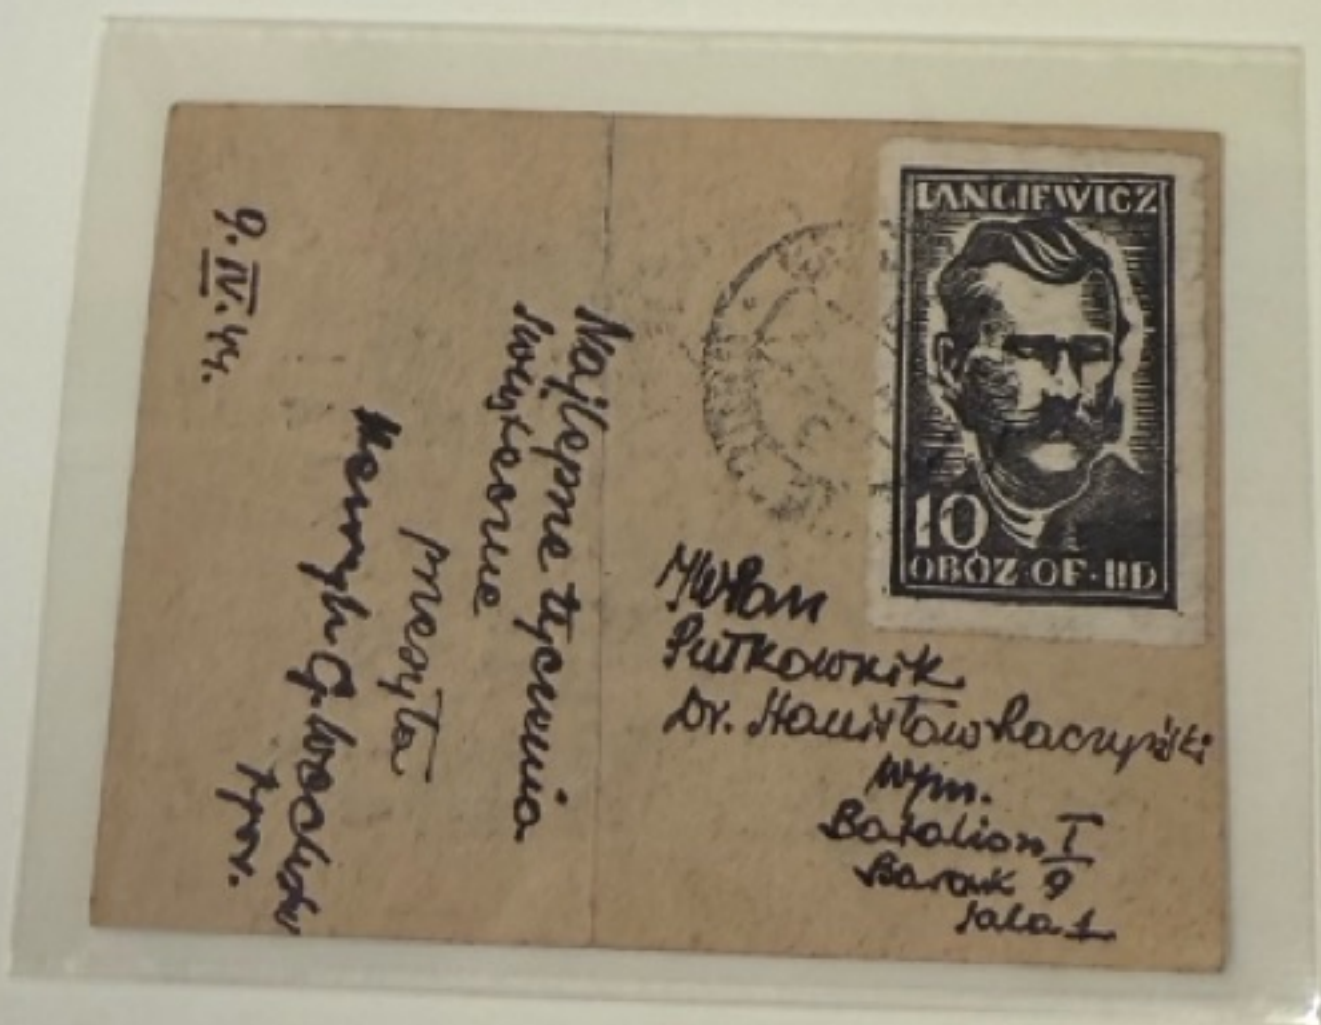 LANGIEWICZ
10
OBÓZ·OF·IID
JWPan
Pułkownik
Dr. Stanisław
wjm.
Batalion I
Barak 9
sala 1
Najlepsze życzenia
świąteczne
przesyła
Henryk
ppor.
9.IV.44.